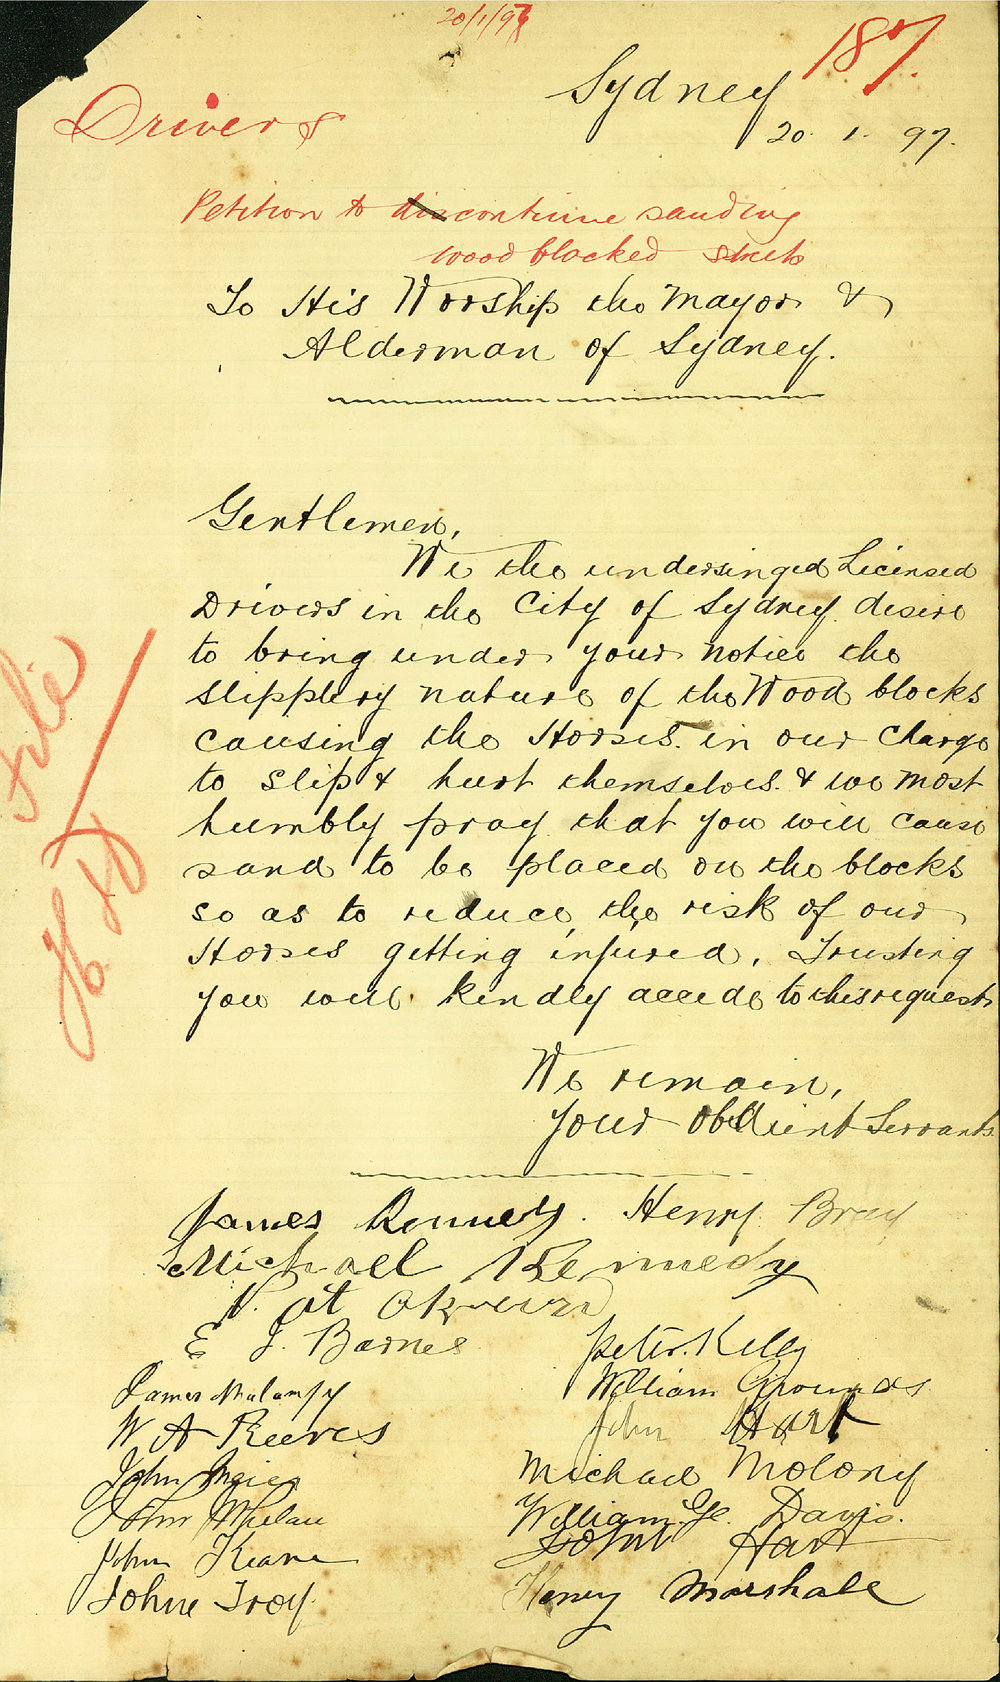 20/1/97
187.
Sydney
20. 1. 97.
Drivers
Petition to discontinue sanding
wood blocked streets
To His Worship the Mayor &
Alderman of Sydney.
Gentlemen,
We the undersinged Licensed
Drivers in the City of Sydney. desire
to bring under your notice the
slipplery nature of the Wood blocks
causing the Horses. in our charge
to slip & hurt themselves. & we most
humbly pray that you will cause
sand to be placed on the blocks
so as to reduce, the risk of our
Horses getting injured. Trusting
you will kindly accede to this request
File
We remain,
Your Obedient Servants.
James Kennedy. Henry Bray
Michael Kennedy
Pat
E J. Barnes
Peter. Kelly
James Mulampy
William Grounds
W A Reeves
John Hart
John
Michael Molony
John Whelan
William. Ge. Davis.
John Keane
John Hart
Johne Troy.
Henry Marshall